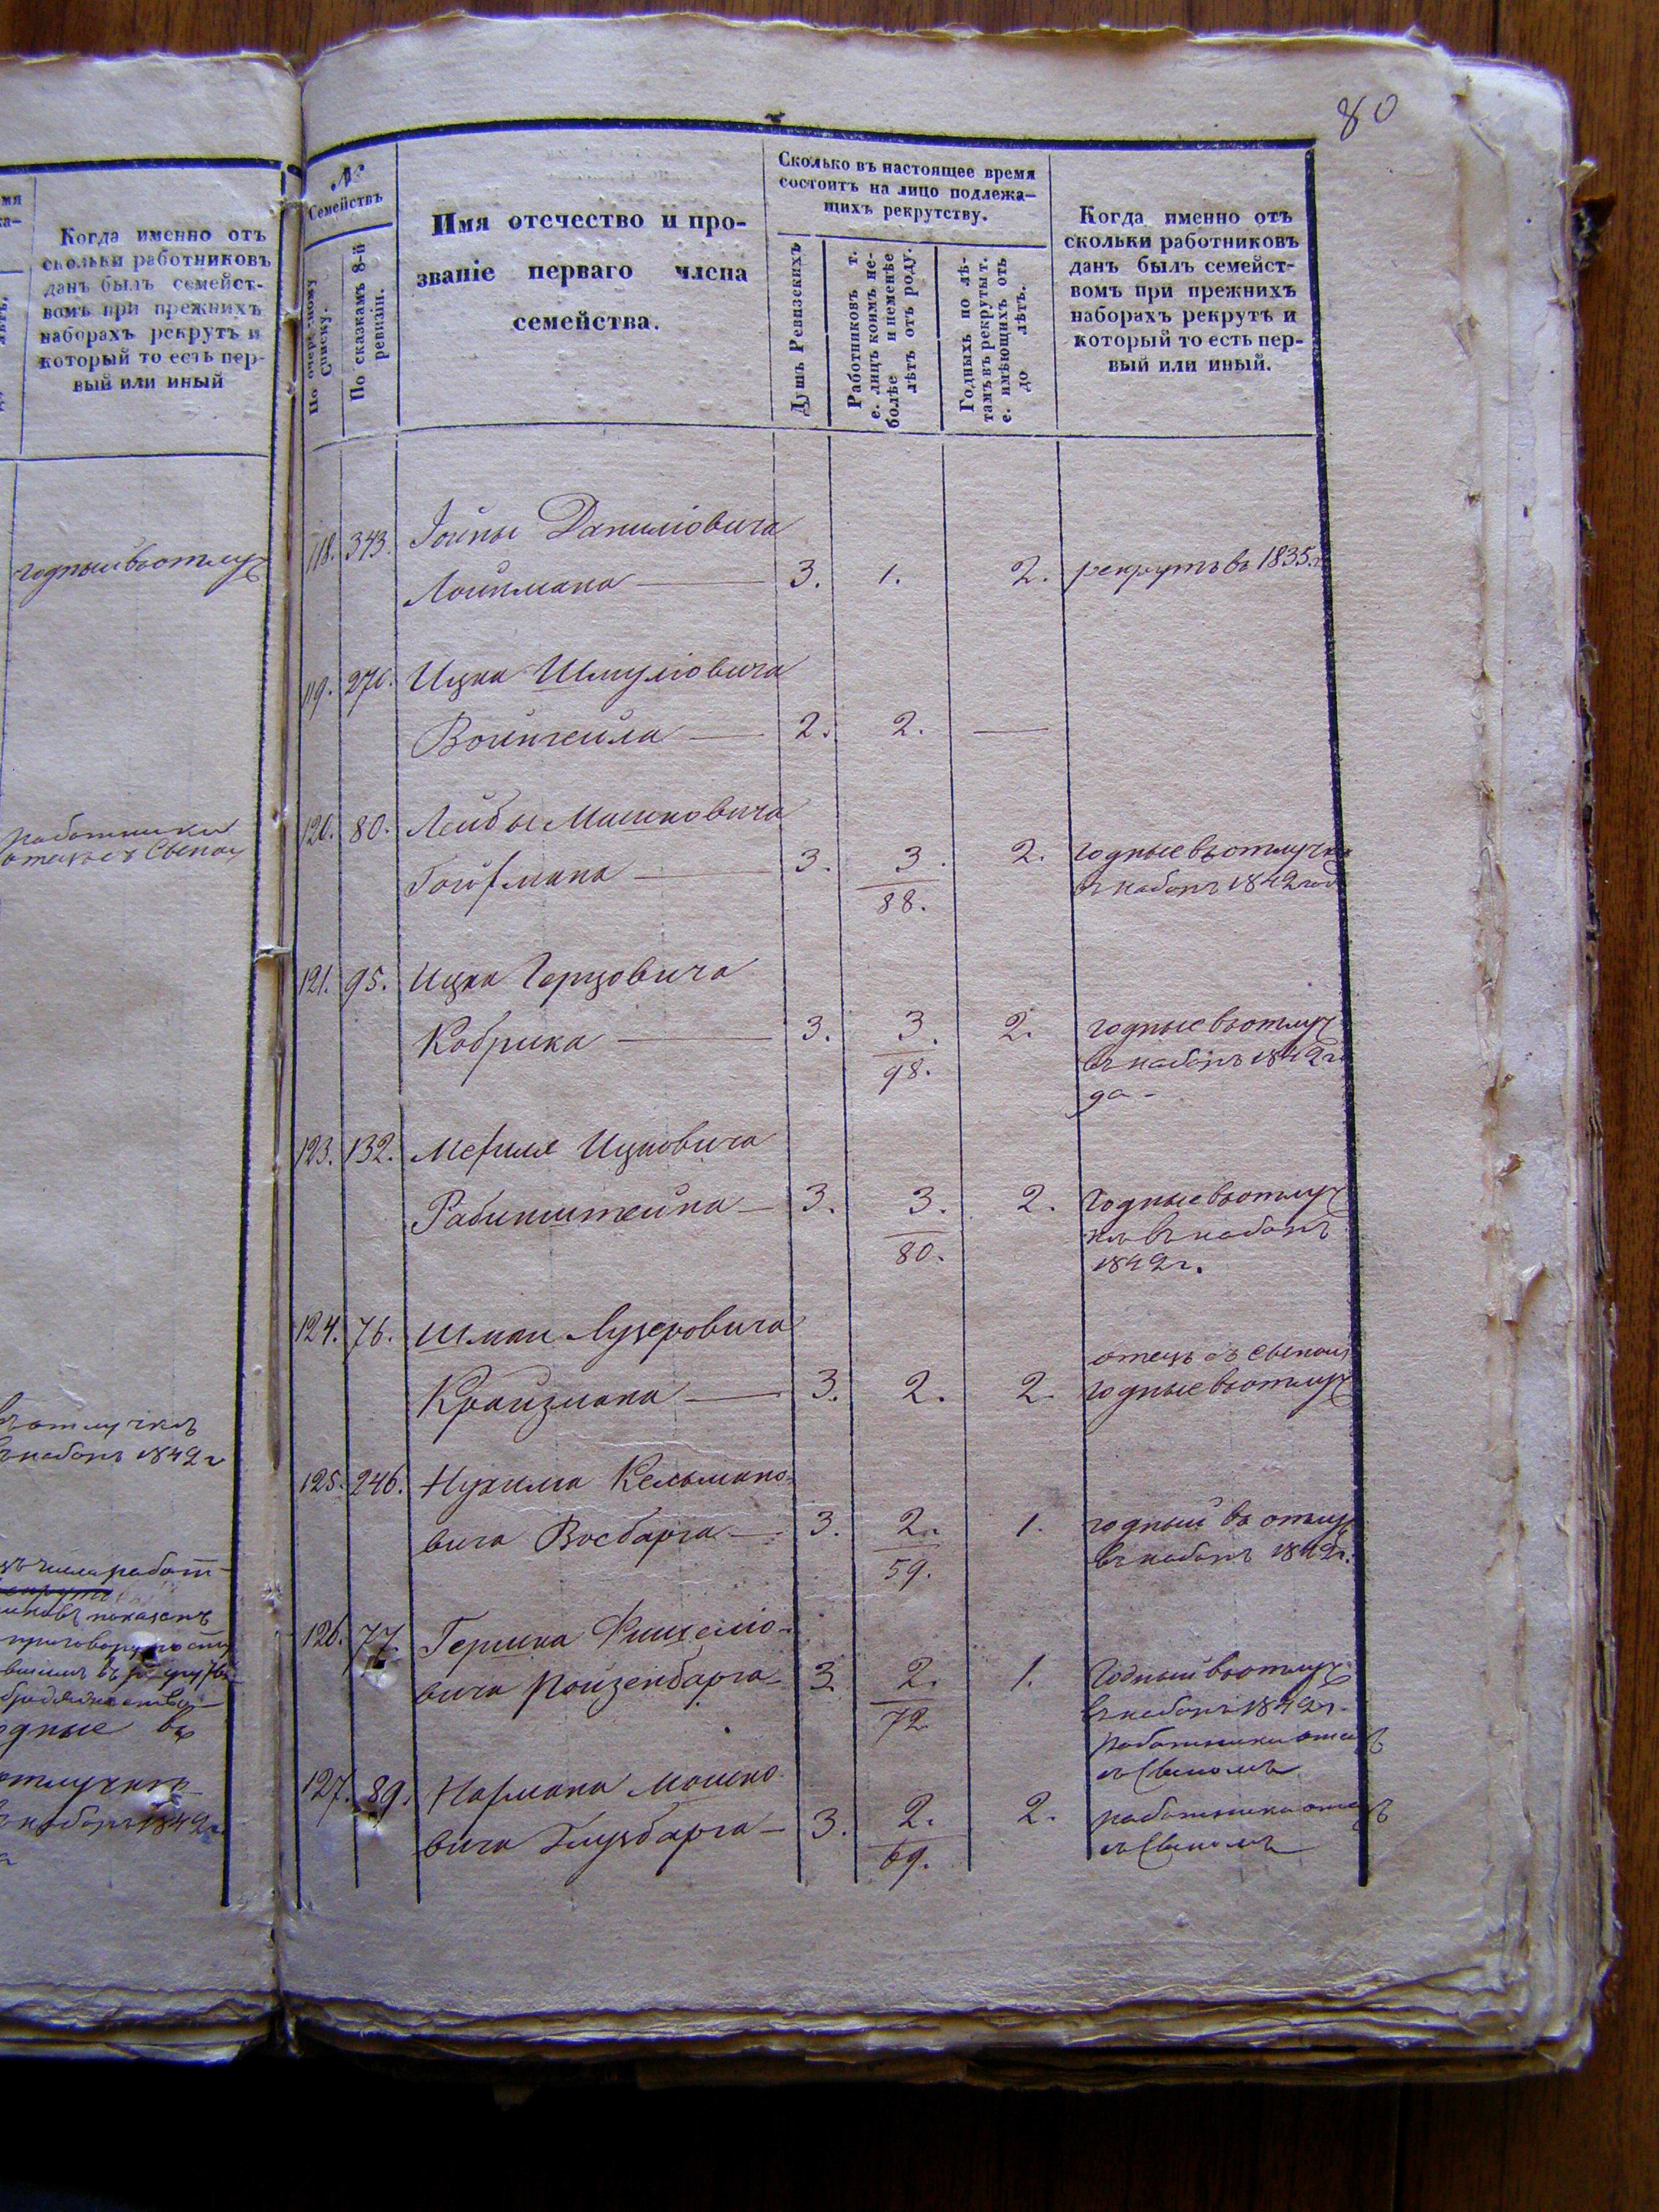 80
мя
ка-
Когда именно отъ
скольки работниковъ
данъ былъ семейст-
вомъ при прежнихъ
наборахъ рекрутъ и
который то есть пер-
вый или иный
годный въ отлуч
работники
отецъ съ сыном
въ отлучкѣ
въ наборъ 1842 г
числа работ-
показанъ
одные въ
отлучкѣ
наборъ 1842 г.
№
Семействъ
По очередному
Списку.
По сказкамъ 8-й
ревизіи.
Имя отечество и про-
званіе перваго члена
семейства.
Сколько въ настоящее время
состоитъ на лицо подлежа-
щихъ рекрутству.
Душъ Ревизскихъ
Работниковъ т.
е. лицъ коимъ не-
болѣе и неменѣе
лѣтъ отъ роду.
Годныхъ по лѣ-
тамъ въ рекруты т.
е. имѣющихъ отъ
до лѣтъ.
Когда именно отъ
скольки работниковъ
данъ былъ семейст-
вомъ при прежнихъ
наборахъ рекрутъ и
который то есть пер-
вый или иный.
118. 343. Іойны Даниліовича
Лойтмана — 3. 1. 2. рекрутъ въ 1835 г
119. 270. Ицка Шмуліовича
Войнгейла — 2. 2. —
120. 80. Лейбы Мошковича
Гойфмана — 3. 3. 2. годные въ отлучкѣ
88. въ наборъ 1842 год
121. 95. Ицка Герцовича
Кобрика — 3. 3. 2. годные въ отлуч
98. въ наборъ 1842 го
да -
123. 132. Мефиля Ицковича
Рабинштейна — 3. 3. 2. Годные въ отлуч
80. кѣ въ наборъ
1842 г.
124. 76. Шмаи Лузеровича
отецъ съ сыном
Крайзмана — 3. 2. 2. годные въ отлуч
125. 246. Нухима Кельмано-
вича Восбарга — 3. 2. 1. годный въ отлуч
59. въ наборъ 1842 г.
126. 77. Гершка Фишеліо-
вича Ройзенбарга — 3. 2. 1. Годный въ отлуч
72. въ наборъ 1842 г.
работники отецъ
съ сыномъ
127. 89. Нафмана Мошко
вича Глузбарга — 3. 2. 2. работники отецъ
69. съ сыномъ